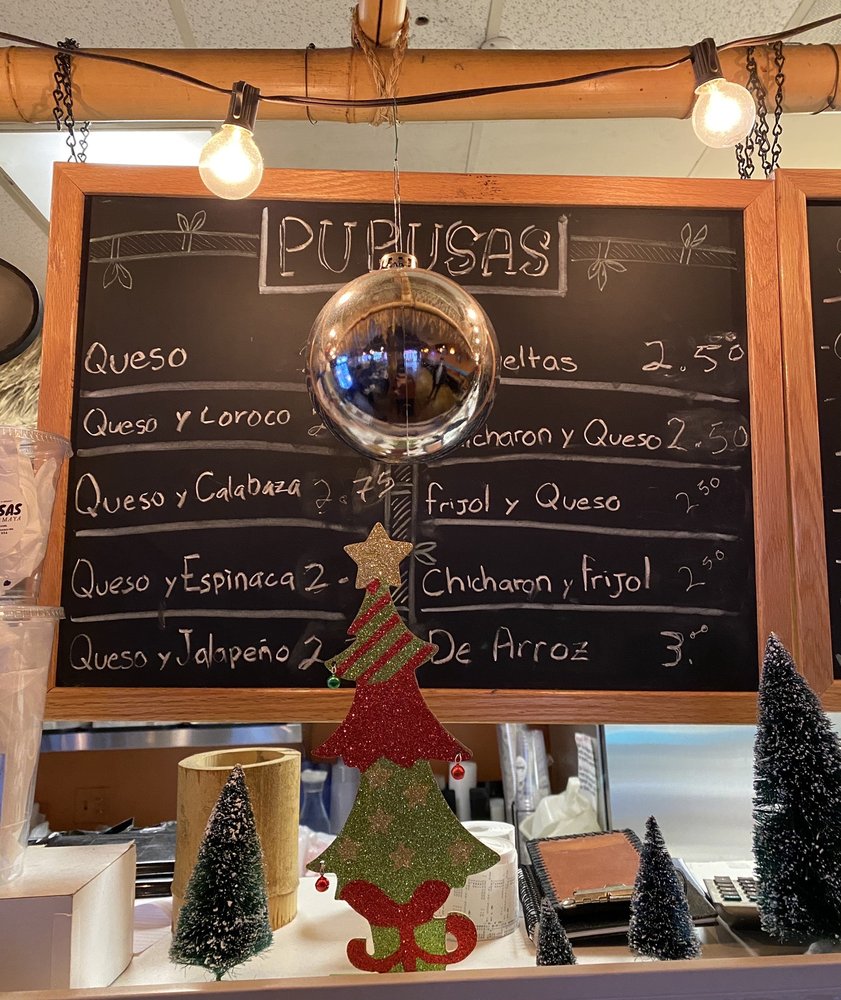 PUPUSAS
Queso
Queso y Loroco
Queso y Calabaza 2.75
Queso y Espinaca 2
Queso y Jalapeño 2
eltas 2.50
charon y Queso 2.50
frijol y Queso 2.50
Chicharon y frijol 2.50
De Arroz 3.00
SAS